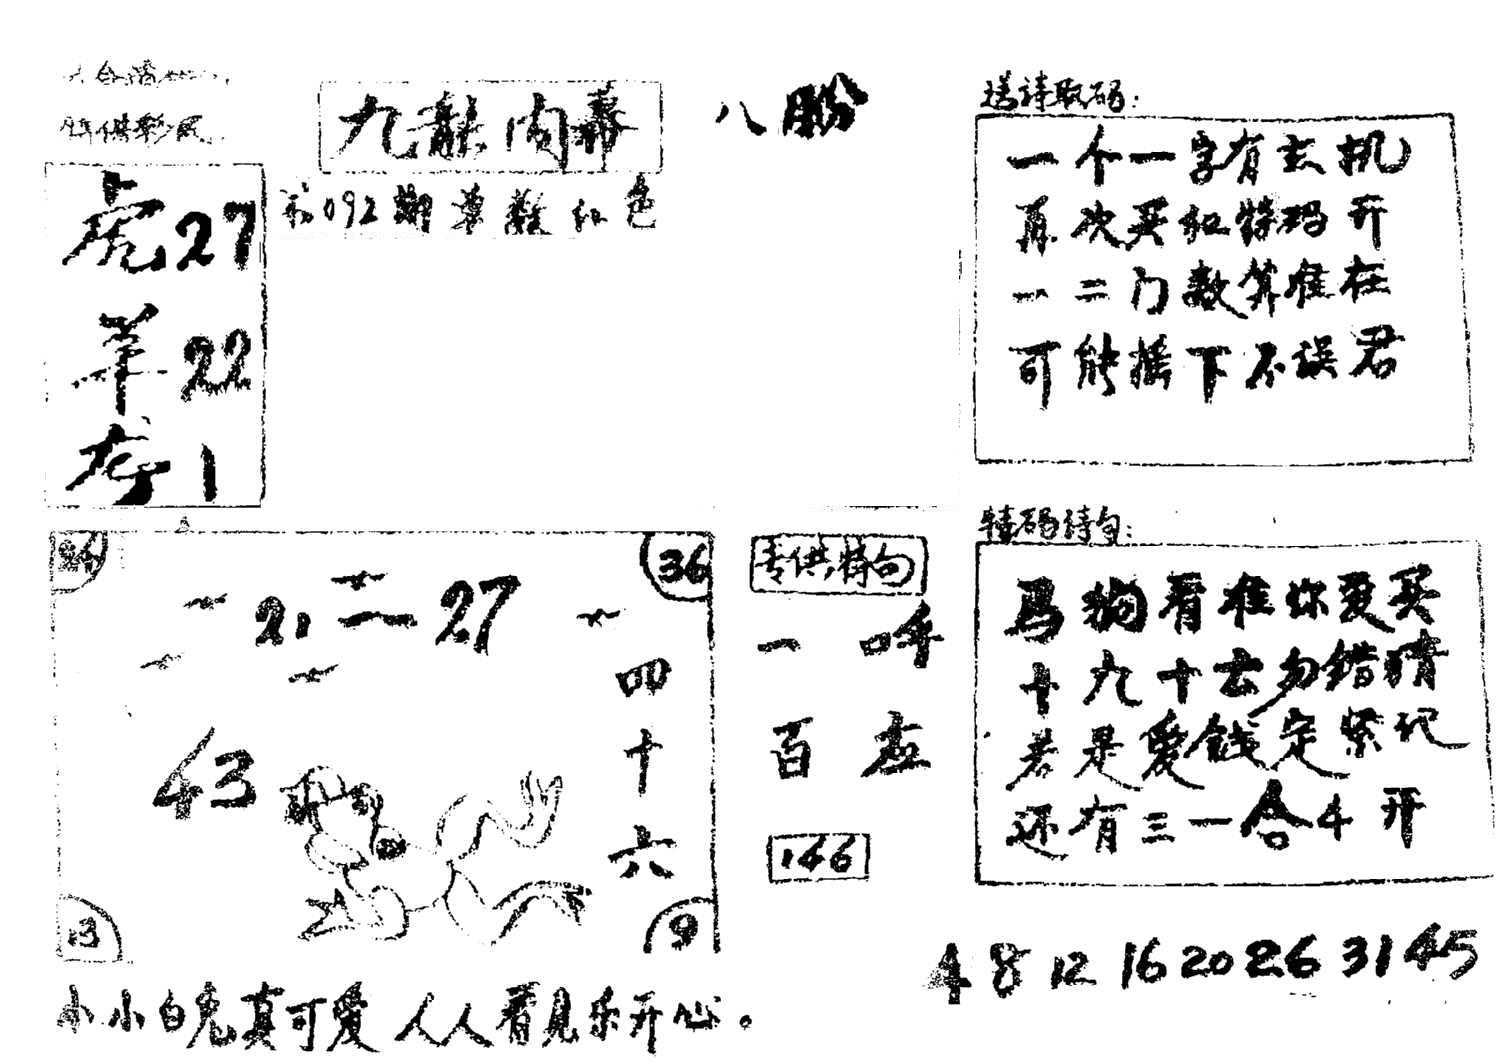 九龍内幕
八肦
第092期單數红色
虎27
羊22
龙1
送詩取码：
一个一字有玄机
再次买红特码开
一二门数算准在
可能摇下不误君
36
21 二 27
43
四十六
13
9
小小白兔真可愛人人看见乐开心。
专供特句
一呼
百应
146
特码诗句：
马狗看准你爱买
十九十去勿错猜
若是爱钱定紧记
还有三一合4开
4 8 12 16 20 26 31 45